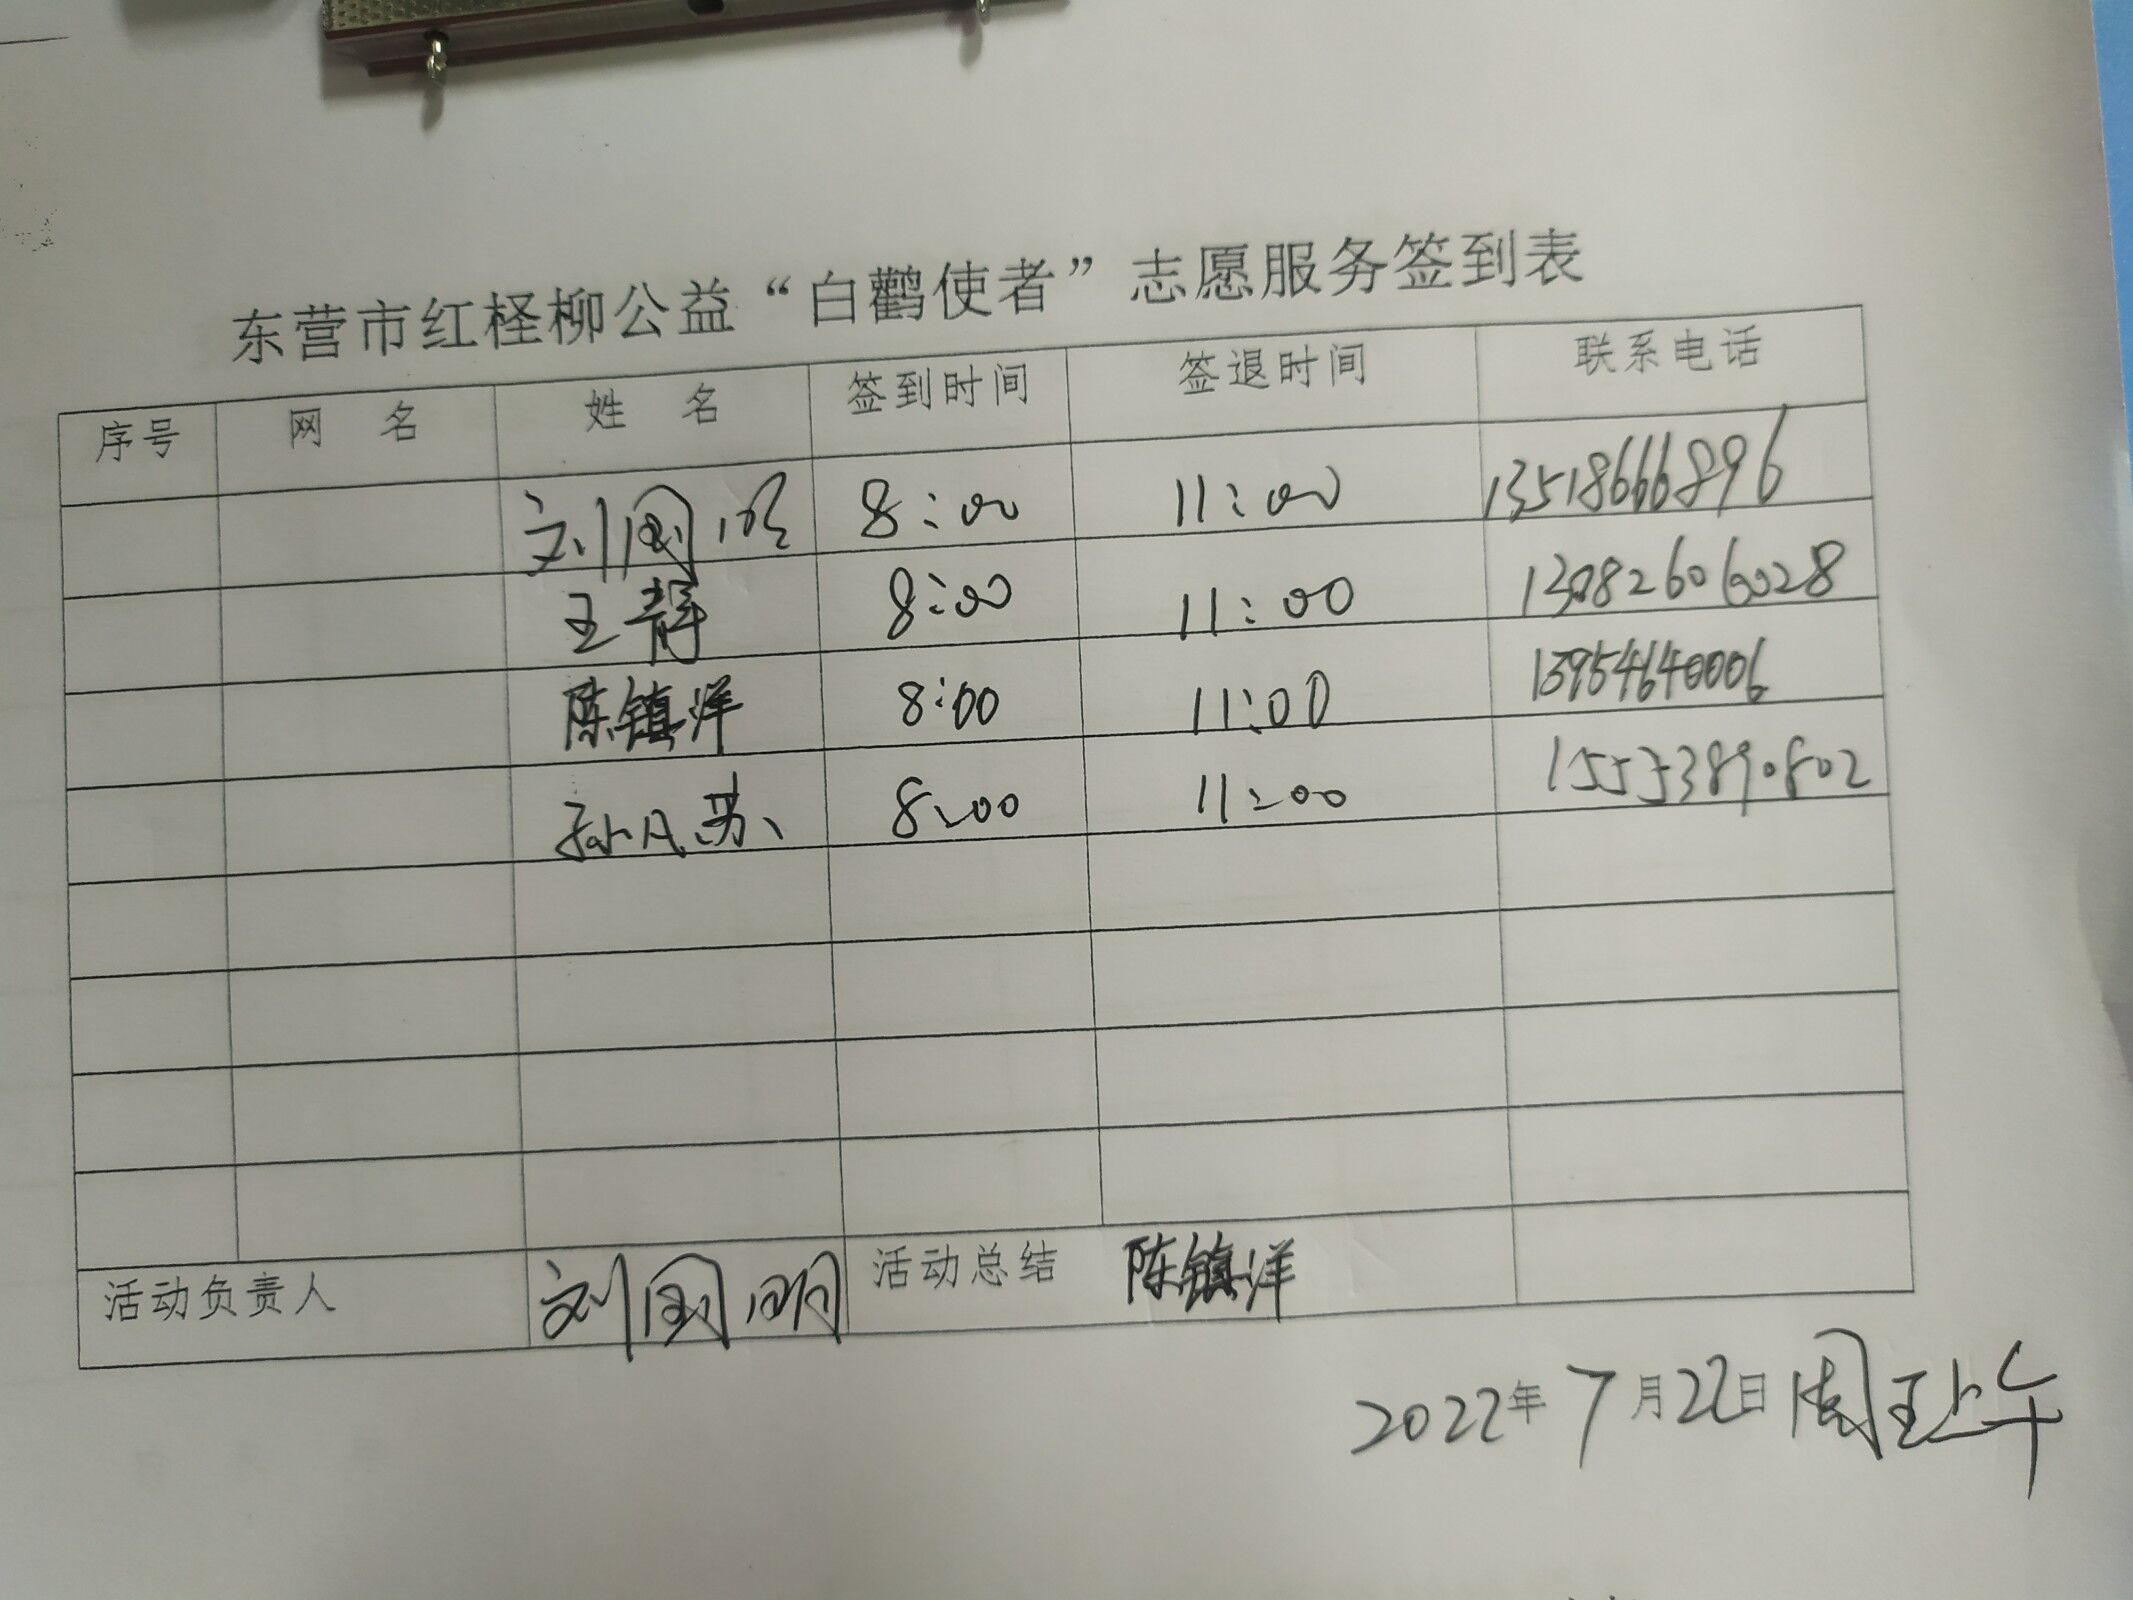 东营市红柽柳公益“白鹳使者”志愿服务签到表
序号 网 名 姓 名 签到时间 签退时间 联系电话
刘国明 8:00 11:00 13518666896
王静 8:00 11:00 13082606028
陈镇洋 8:00 11:00 13954640006
孙凡苏 8:00 11:00 15553890802
活动负责人 刘国明 活动总结 陈镇洋
2022年7月22日周五上午